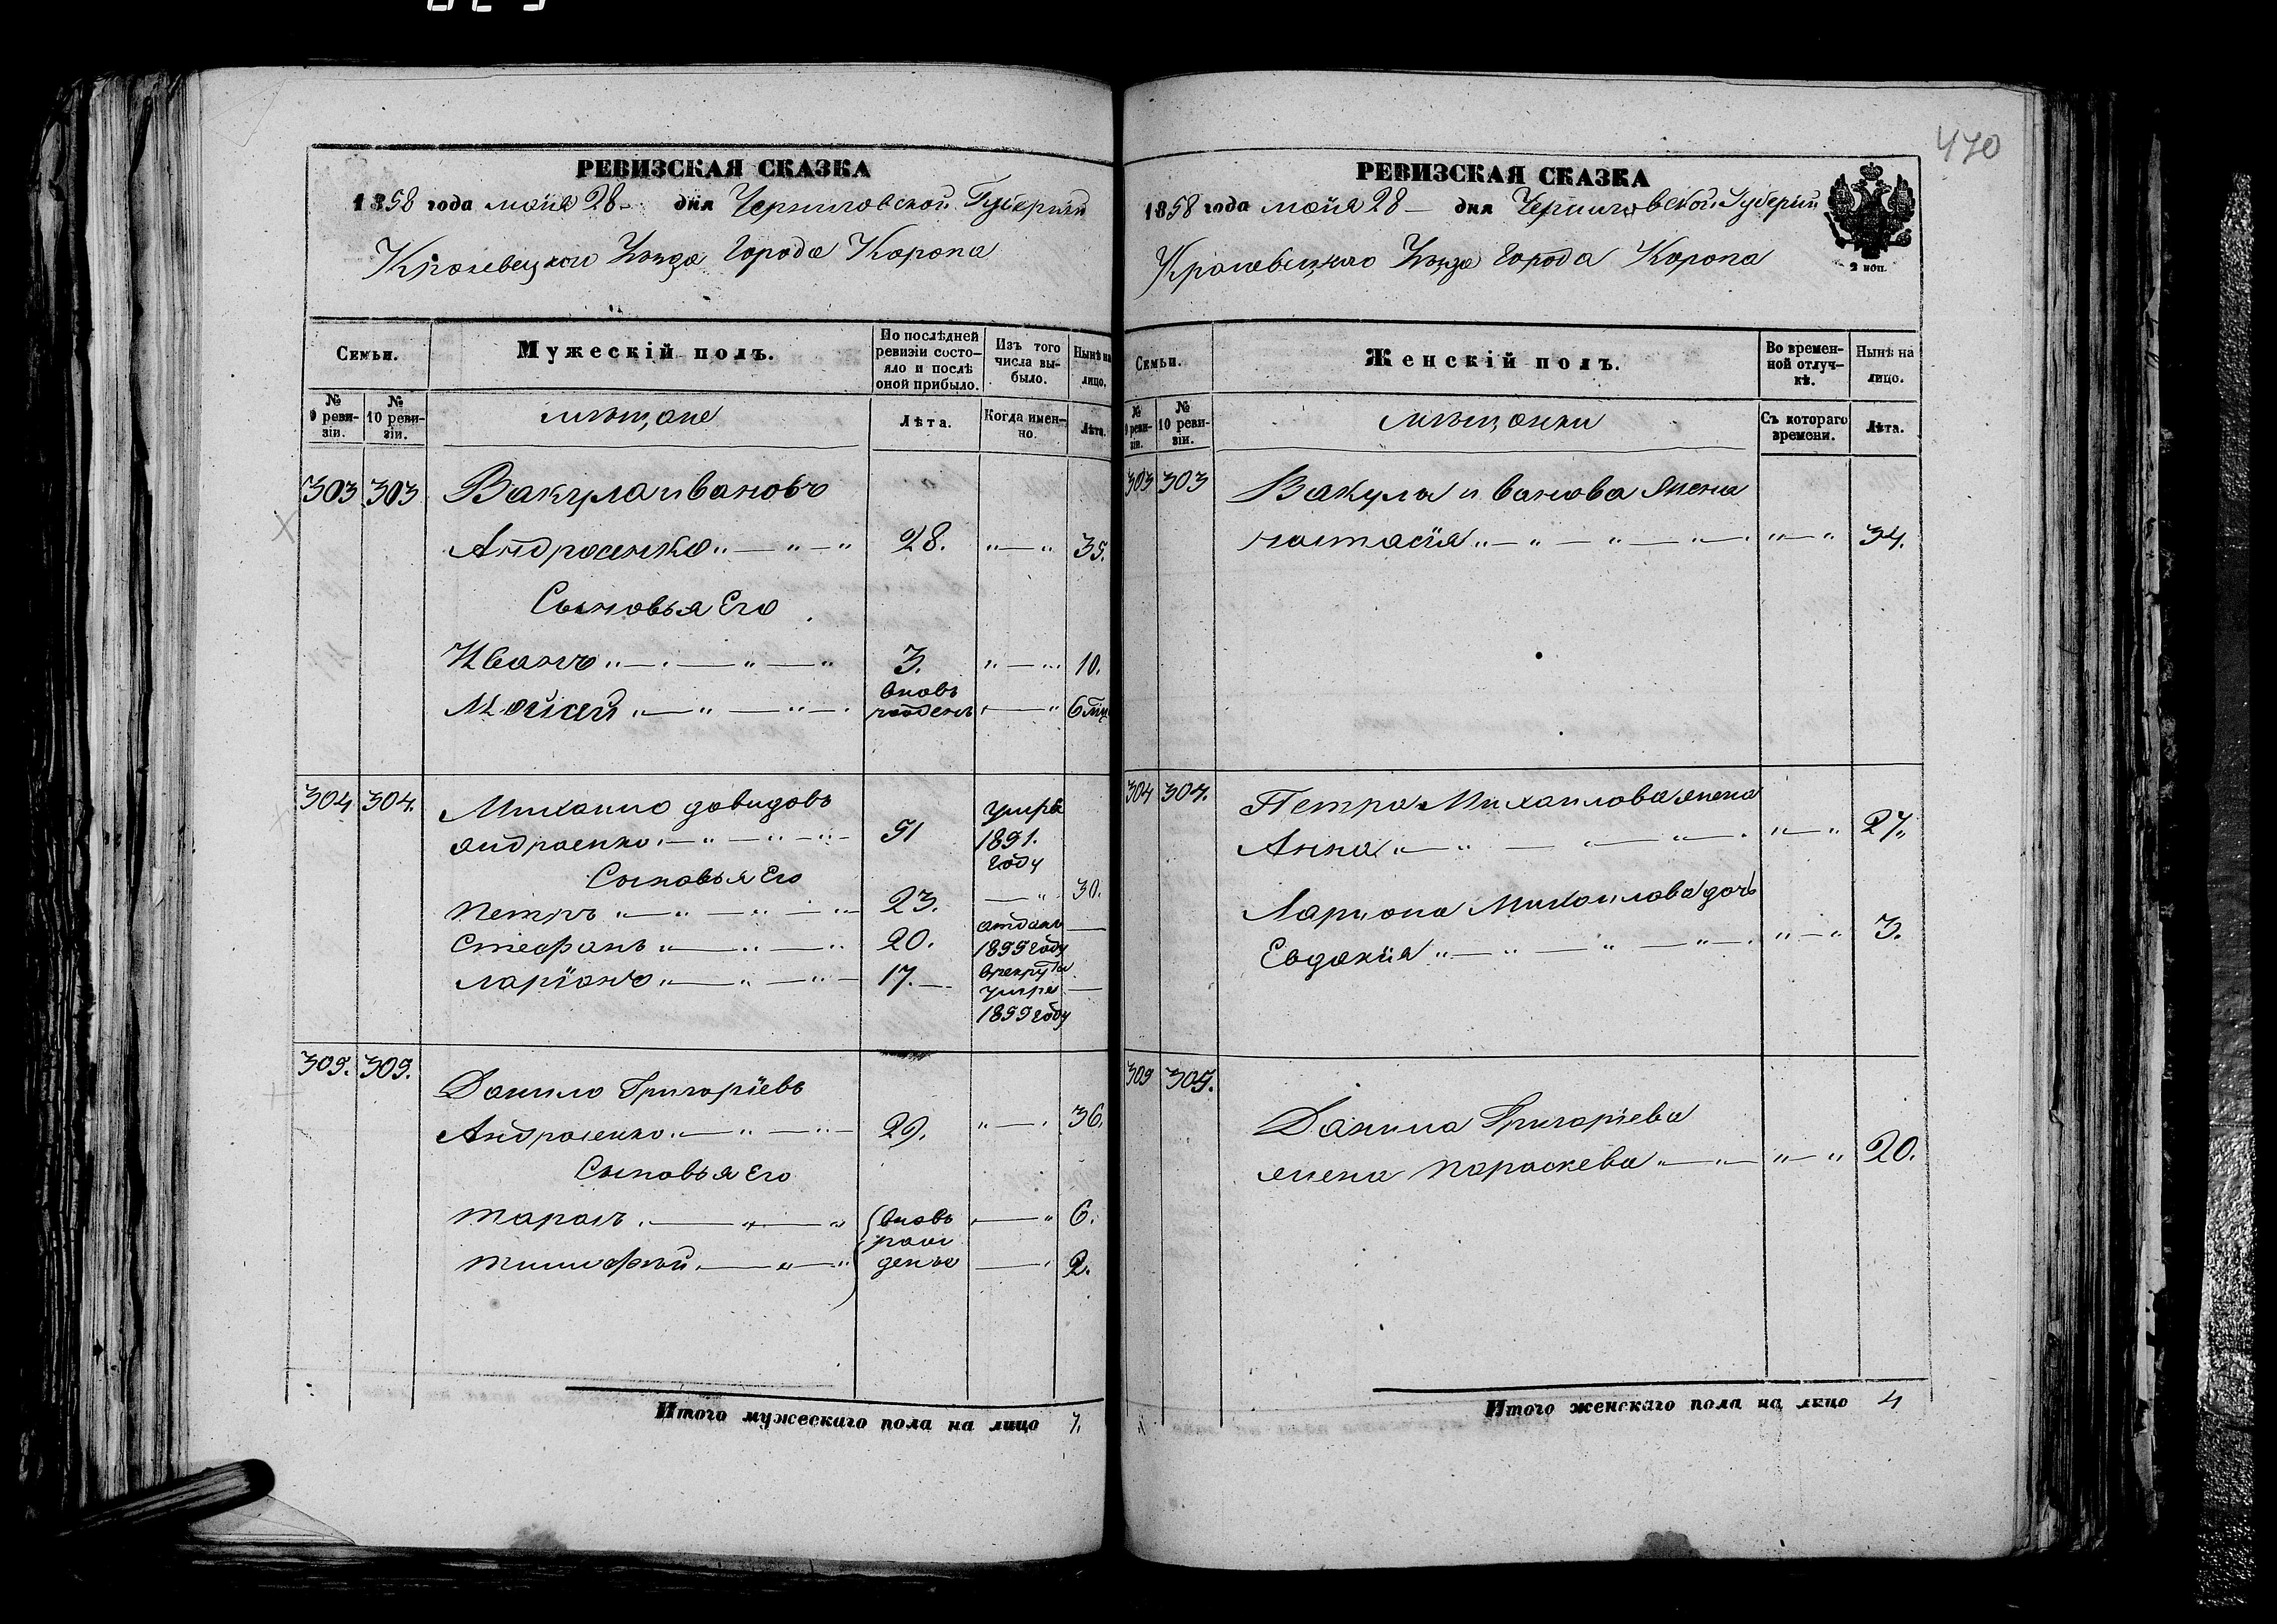 470
РЕВИЗСКАЯ СКАЗКА
1858 года мая 28 дня Черниговской Губерніи
Кролевецкого Уезда Города Коропа
Семьи.
Мужескій полъ.
По послѣдней ревизіи состояло и послѣ оной прибыло.
Изъ того числа выбыло.
Нынѣ на лицо.
№ 9 ревизіи.
№ 10 ревизіи.
мещане
Лѣта.
Когда именно.
Лѣта.
303 303 Вакула ивановъ
Андроенко 28. 35.
Сыновья Его
Иванъ 3. 10.
Мойсей вновь рожденъ 6 мц
304 304. Михаило давидовъ
андроенко 51 умре 1851. году
Сыновья Его
Петръ 23. 30.
Стефанъ 20. отданъ 1855 году врекруты
ларіонъ 17. умре 1855 году
305. 305. Данило Григоріевъ
Андроенко 29. 36.
Сыновья Его
Тарасъ вновь рожденъ 6.
Тимофей 2.
Итого мужескаго пола на лицо 7.
РЕВИЗСКАЯ СКАЗКА
1858 года мая 28 дня Черниговской Губерніи
Кролевецкого Уезда Города Коропа
2 коп.
Семьи.
Женскій полъ.
Во временной отлучкѣ.
Нынѣ на лицо.
№ 9 ревизіи.
№ 10 ревизіи.
мещанки
Съ котораго времени.
Лѣта.
303 303 Вакулы иванова жена
настасія 34.
304 304. Петра Михаилова жена
Анна 27.
Лариона Михаилова дочь
Евдокія 3.
305 305. Данила Григоріева
жена параскева 20.
Итого женскаго пола на лицо 4